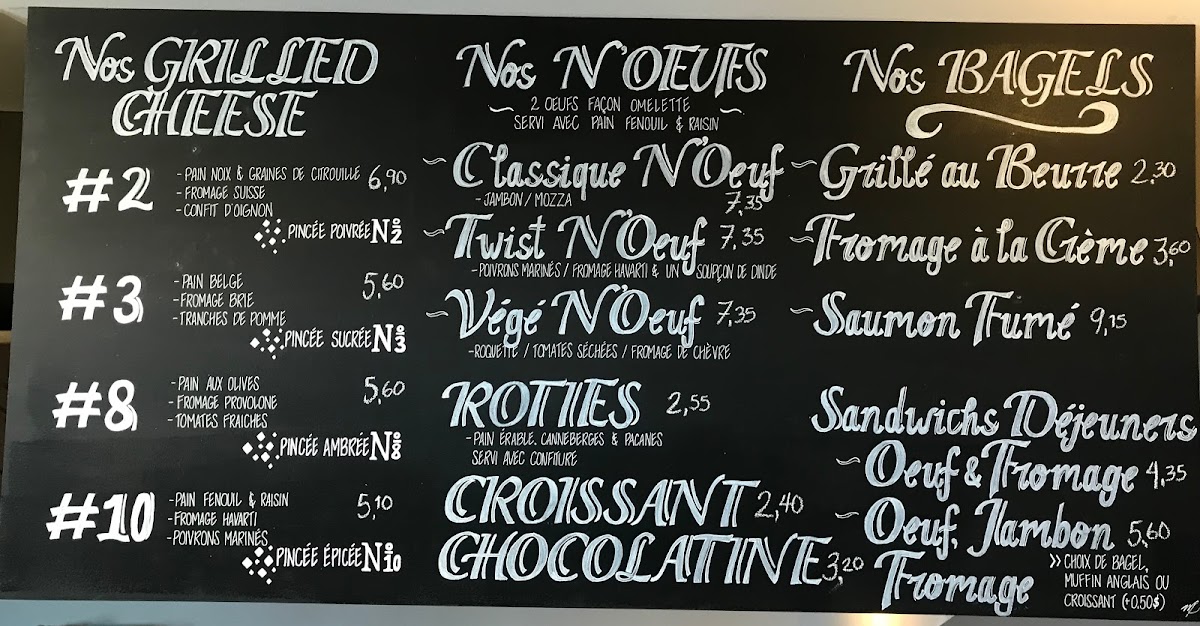 Nos GRILLED
CHEESE
#2
- PAIN NOIX & GRAINES DE CITROUILLE 6,90
- FROMAGE SUISSE
- CONFIT D'OIGNON
PINCÉE POIVRÉE Nº2
#3
- PAIN BELGE 5,60
- FROMAGE BRIE
- TRANCHES DE POMME
PINCÉE SUCRÉE Nº3
#8
- PAIN AUX OLIVES 5,60
- FROMAGE PROVOLONE
- TOMATES FRAICHES
PINCÉE AMBRÉE Nº8
#10
- PAIN FENOUIL & RAISIN 5,10
- FROMAGE HAVARTI
- POIVRONS MARINÉS
PINCÉE ÉPICÉE Nº10
Nos N'OEUFS
2 OEUFS FAÇON OMELETTE
SERVI AVEC PAIN FENOUIL & RAISIN
~Classique N'Oeuf
- JAMBON / MOZZA 7,35
~Twist N'Oeuf 7,35
- POIVRONS MARINÉS / FROMAGE HAVARTI & UN SOUPÇON DE DINDE
~Végé N'Oeuf 7,35
- ROQUETTE / TOMATES SÉCHÉES / FROMAGE DE CHÈVRE
ROTIES 2,55
- PAIN ÉRABLE, CANNEBERGES & PACANES
SERVI AVEC CONFITURE
CROISSANT 2,40
CHOCOLATINE 3,20
Nos BAGELS
~Grillé au Beurre 2,30
~Fromage à la Crème 3,60
~Saumon Fumé 9,15
Sandwichs Déjeuners
~Oeuf & Fromage 4,35
~Oeuf, Jambon 5,60
Fromage
>> CHOIX DE BAGEL,
MUFFIN ANGLAIS OU
CROISSANT (+0.50$)